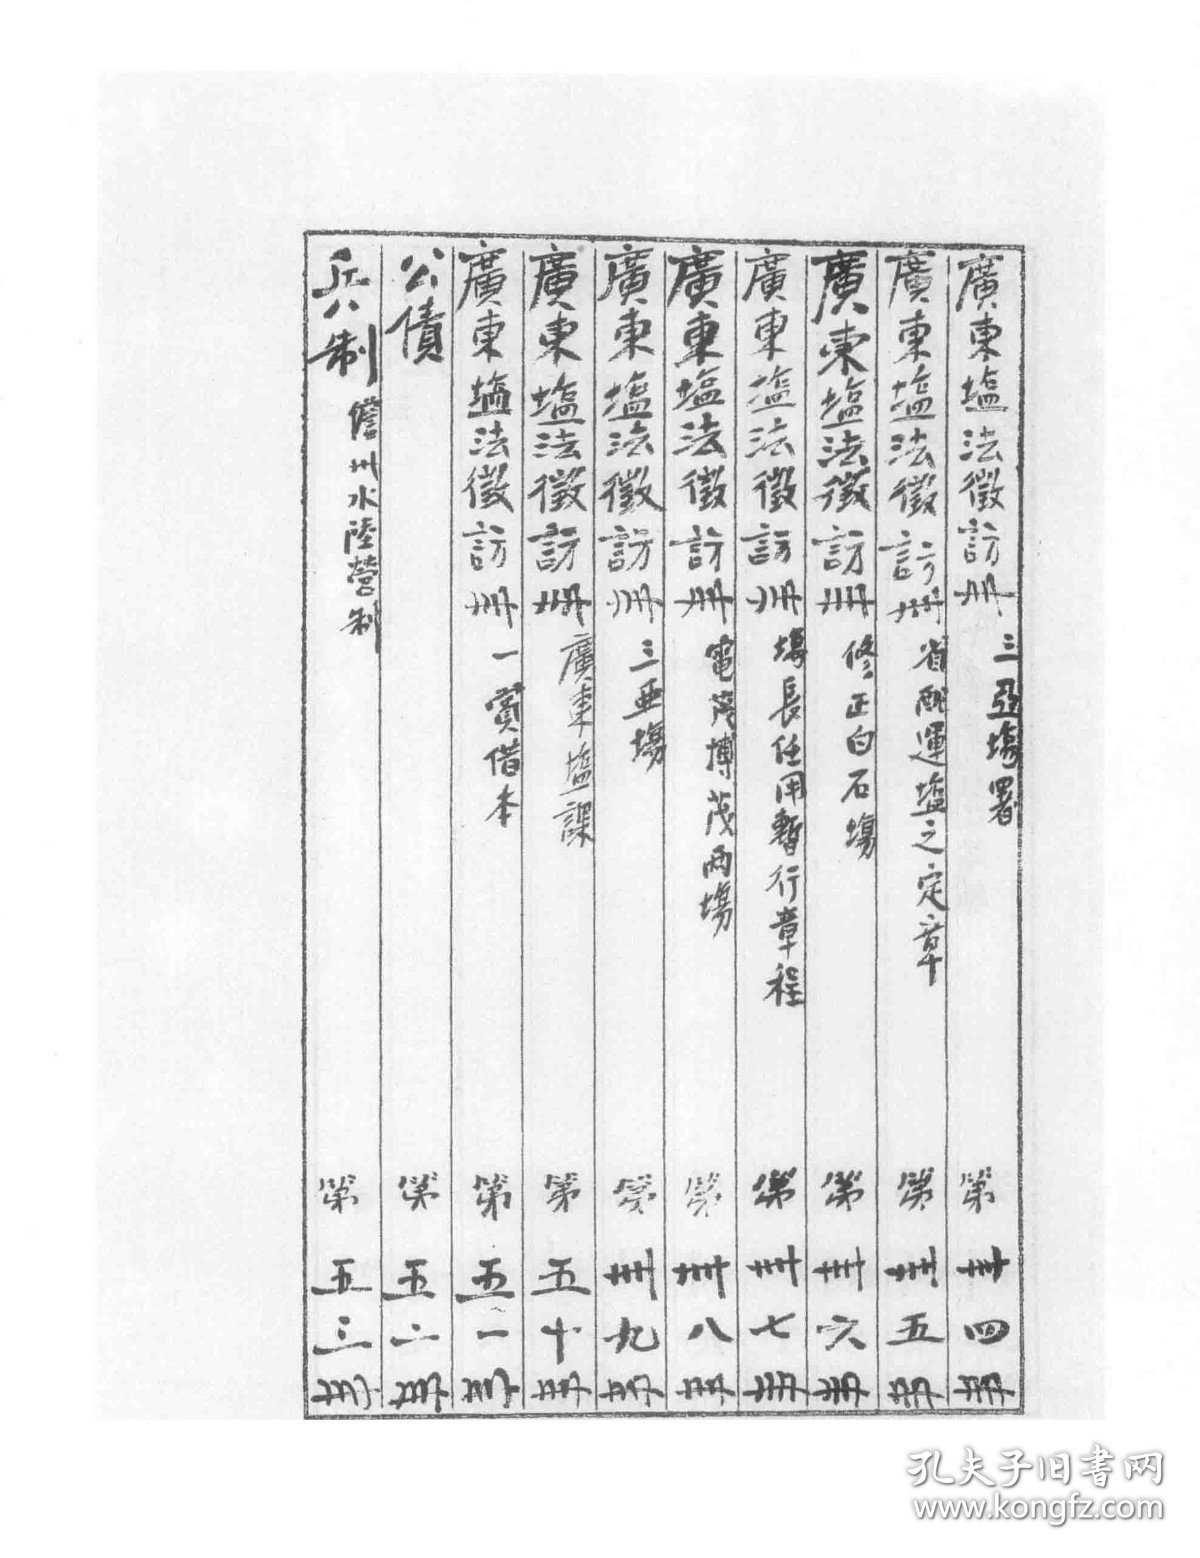 廣東塩法徵訪冊 三亞塲署 第卌四冊
廣東塩法徵訪冊 省配運塩之定章 第卌五冊
廣東塩法徵訪冊 修正白石塲 第卌六冊
廣東塩法徵訪冊 塲長任用暫行章程 第卌七冊
廣東塩法徵訪冊 電茂博茂兩塲 第卌八冊
廣東塩法徵訪冊 三亞塲 第卌九冊
廣東塩法徵訪冊 廣東塩課 第五十冊
廣東塩法徵訪冊 一賞借本 第五一冊
公債 第五二冊
兵制 儋州水陸營制 第五三冊
孔夫子旧书网
www.kongfz.com